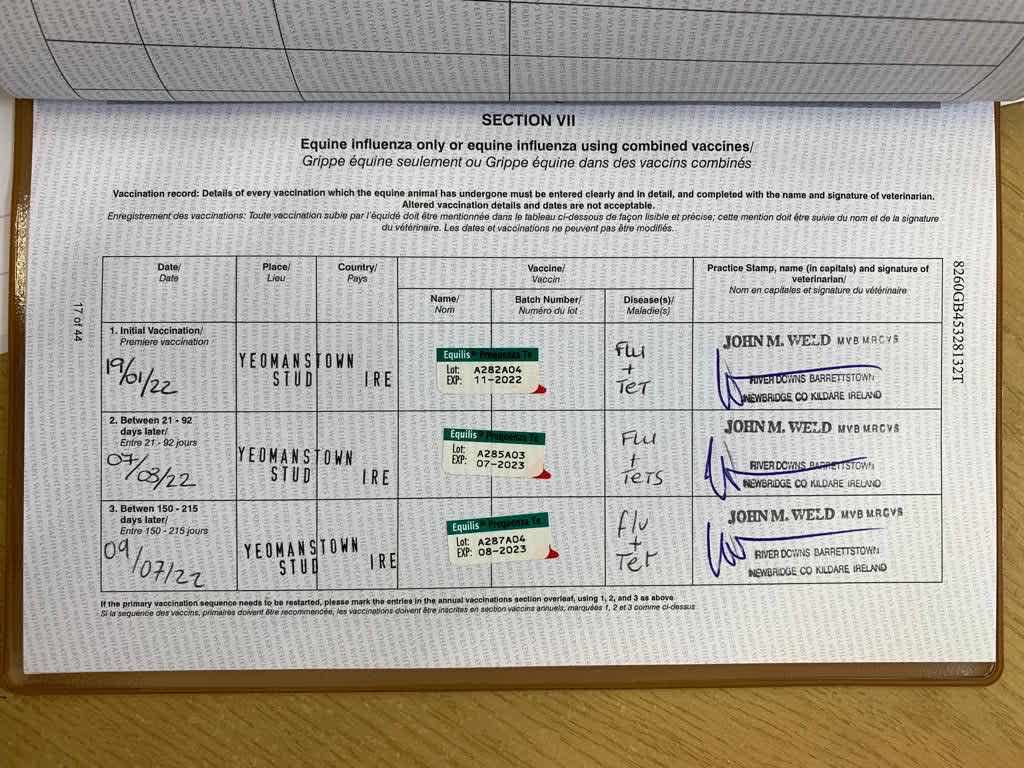 SECTION VII
Equine influenza only or equine influenza using combined vaccines/
Grippe équine seulement ou Grippe équine dans des vaccins combinés
Vaccination record: Details of every vaccination which the equine animal has undergone must be entered clearly and in detail, and completed with the name and signature of veterinarian.
Altered vaccination details and dates are not acceptable.
Enregistrement des vaccinations: Toute vaccination subie par l'équidé doit être mentionnée dans le tableau ci-dessous de façon lisible et précise; cette mention doit être suivie du nom et de la signature
du vétérinaire. Les dates et vaccinations ne peuvent pas être modifiés.
Date/
Date
Place/
Lieu
Country/
Pays
Vaccine/
Vaccin
Name/
Nom
Batch Number/
Numéro du lot
Disease(s)/
Maladie(s)
Practice Stamp, name (in capitals) and signature of
veterinarian/
Nom en capitales et signature du vétérinaire
1. Initial Vaccination/
Premiere vaccination
19/01/22
YEOMANSTOWN
STUD IRE
Equilis Prequenza Te
Lot: A282A04
EXP: 11-2022
Flu
+
TeT
JOHN M. WELD MVB MRCVS
RIVER DOWNS BARRETTSTOWN
NEWBRIDGE CO KILDARE IRELAND
2. Between 21 - 92
days later/
Entre 21 - 92 jours
07/03/22
YEOMANSTOWN
STUD IRE
Equilis Prequenza Te
Lot: A285A03
EXP: 07-2023
Flu
+
TeTS
JOHN M. WELD MVB MRCVS
RIVER DOWNS BARRETTSTOWN
NEWBRIDGE CO KILDARE IRELAND
3. Betwen 150 - 215
days later/
Entre 150 - 215 jours
09/07/22
YEOMANSTOWN
STUD IRE
Equilis Prequenza Te
Lot: A287A04
EXP: 08-2023
flu
+
Tet
JOHN M. WELD MVB MRCVS
RIVER DOWNS BARRETTSTOWN
NEWBRIDGE CO KILDARE IRELAND
If the primary vaccination sequence needs to be restarted, please mark the entries in the annual vaccinations section overleaf, using 1, 2, and 3 as above
Si la sequence des vaccins, primaires doivent être recommencée, les vaccinations doivent être inscrites en section vaccins annuels, marquées 1, 2 et 3 comme ci-dessus
17 of 44
8260GB45328132T